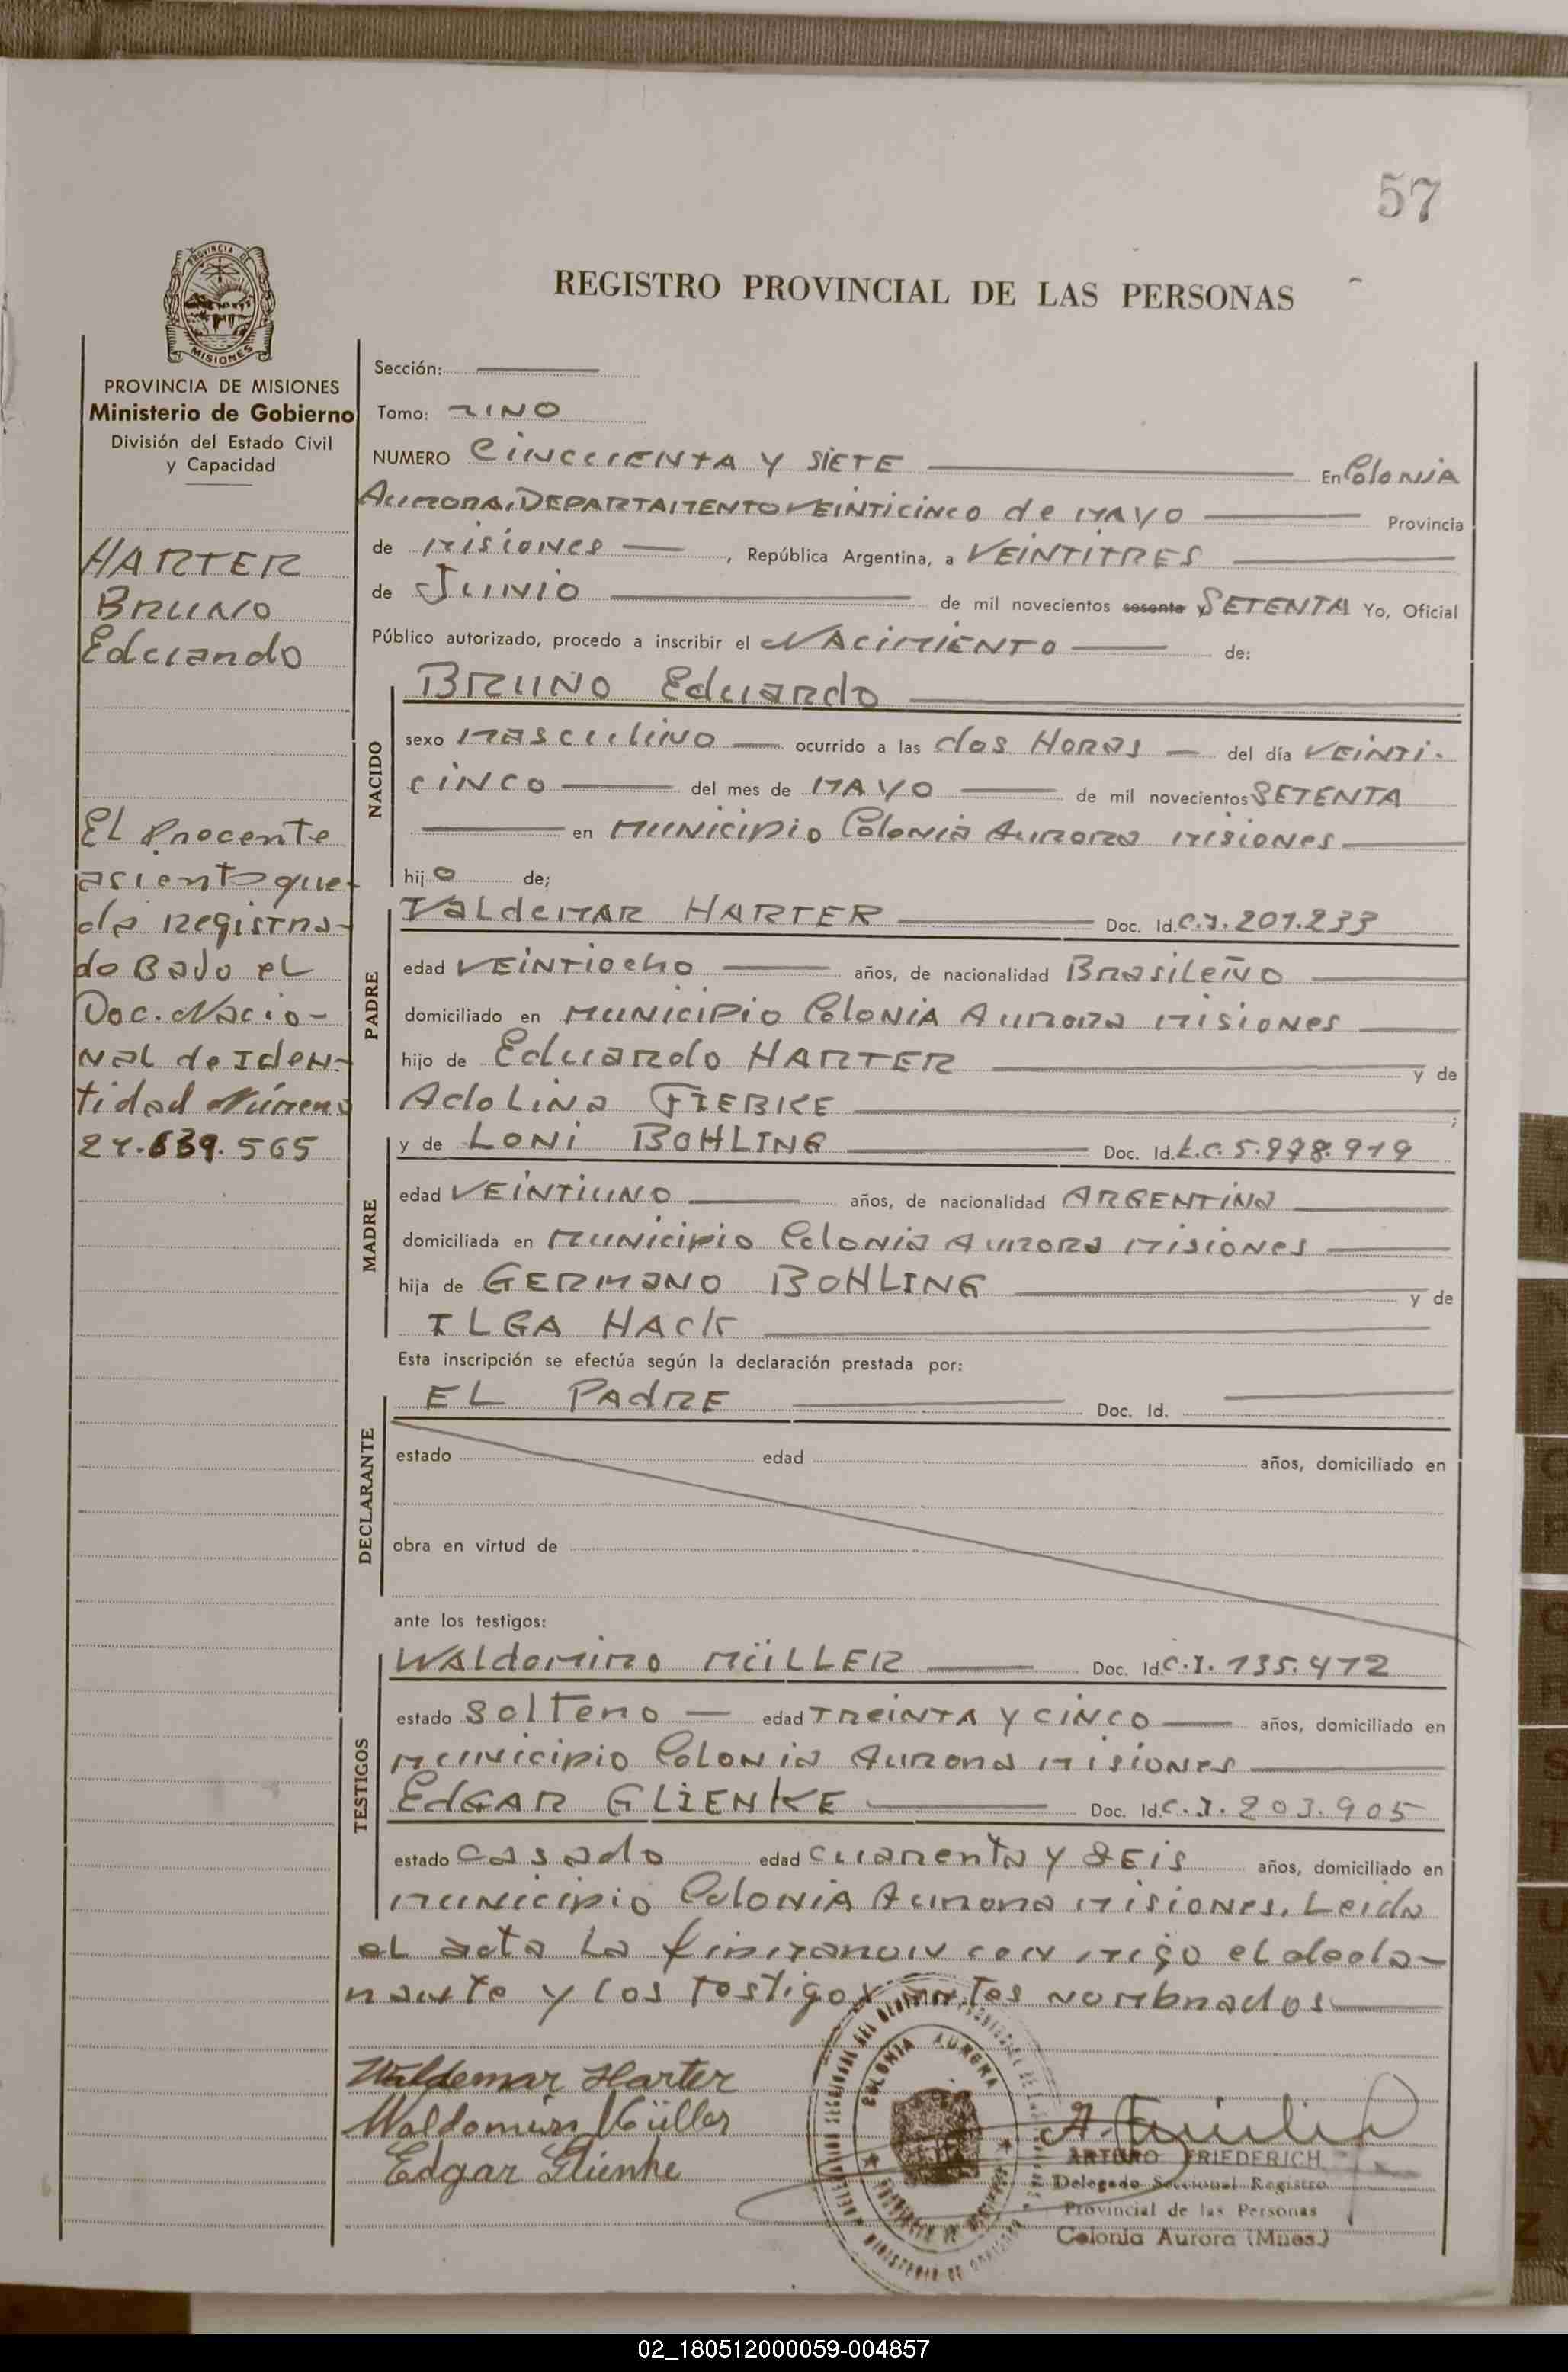 57
PROVINCIA DE
MISIONES
REGISTRO PROVINCIAL DE LAS PERSONAS
PROVINCIA DE MISIONES
Ministerio de Gobierno
División del Estado Civil
y Capacidad
HARTER
BRUNO
Eduardo
El Precente
asiento que-
da registra-
do Bajo el
Doc. Nacio-
nal de Iden-
tidad Número
21.639.565
Sección:
Tomo: UNO
NUMERO CINCUENTA Y SIETE En Colonia
Aurora, DEPARTAMENTO VEINTICINCO de MAYO Provincia
de Misiones, República Argentina, a VEINTITRES
de Junio de mil novecientos sesenta SETENTA Yo, Oficial
Público autorizado, procedo a inscribir el NACIMIENTO de:
BRUNO Eduardo
NACIDO
sexo Masculino ocurrido a las dos Horas del día VEINTI-
CINCO del mes de MAYO de mil novecientos SETENTA
en Municipio Colonia Aurora Misiones
hijo de;
PADRE
ValdeMAR HARTER Doc. Id. C.I. 201.233
edad VEINTIOCHO años, de nacionalidad Brasileño
domiciliado en Municipio Colonia Aurora Misiones
hijo de Eduardo HARTER y de
AdoLina FIEBKE ;
MADRE
y de LONI BOHLING Doc. Id. L.C. 5.978.919
edad VEINTIUNO años, de nacionalidad ARGENTINA
domiciliada en Municipio Colonia Aurora Misiones
hija de GERMANO BOHLING y de
ILGA HACK
Esta inscripción se efectúa según la declaración prestada por:
DECLARANTE
EL PADRE Doc. Id.
estado edad años, domiciliado en
obra en virtud de
ante los testigos:
TESTIGOS
WALDOMIRO MÜLLER Doc. Id. C.I. 135.472
estado Soltero edad TREINTA Y CINCO años, domiciliado en
Municipio Colonia Aurora Misiones
EDGAR GLIENKE Doc. Id. C.I. 203.905
estado casado edad cuarenta y SEIS años, domiciliado en
Municipio Colonia Aurora Misiones, Leida
el acta La firmaron con migo el decla-
rante y los testigos antes nombrados
Waldemar Harter
Waldomiro Müller
Edgar Glienke
COLONIA AURORA
ARTURO FRIEDERICH
Delegado Seccional Registro
Provincial de las Personas
Colonia Aurora (Mnes.)
02_180512000059-004857